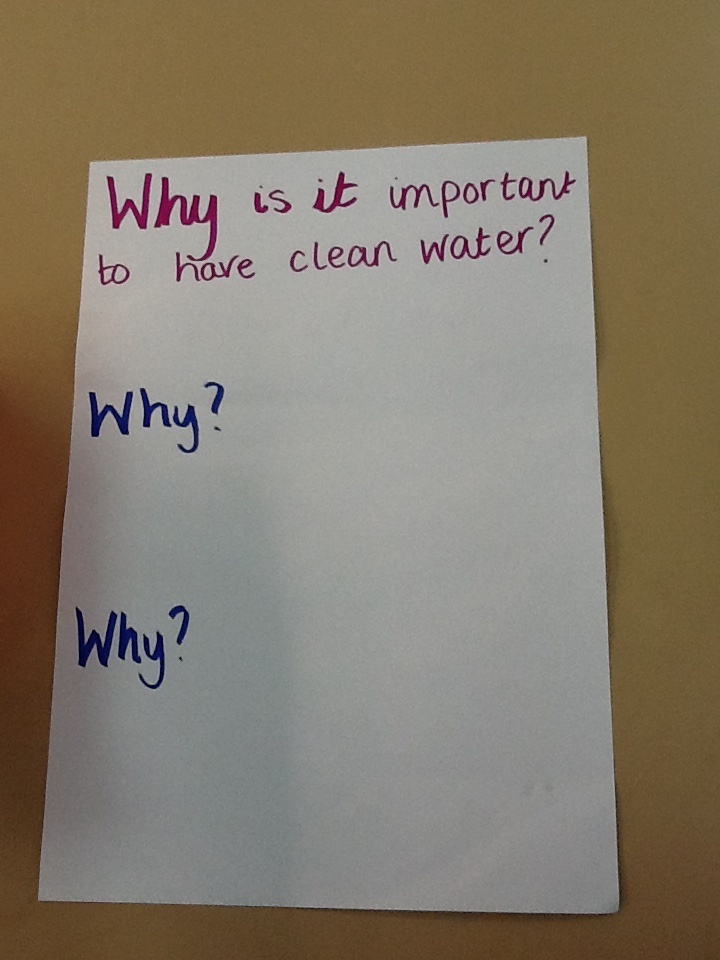 Why is it important
to have clean water?
Why?
Why?